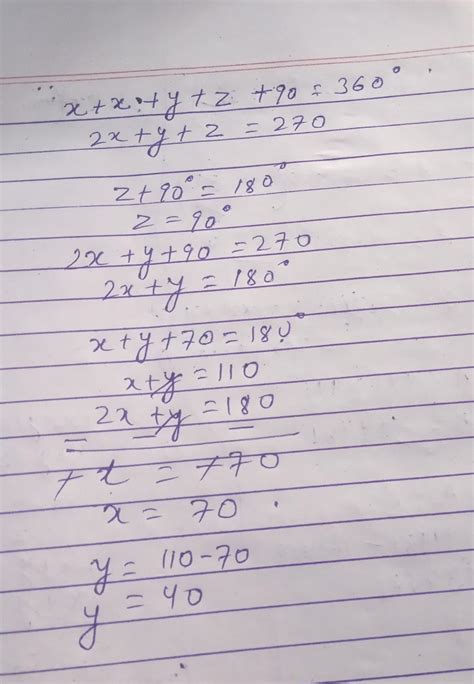 x + x + y + z + 90 = 360°
2x + y + z = 270
z + 90° = 180°
z = 90°
2x + y + 90 = 270
2x + y = 180°
x + y + 70 = 180°
x + y = 110
2x + y = 180
- - -
+x = +70
x = 70
y = 110 - 70
y = 40